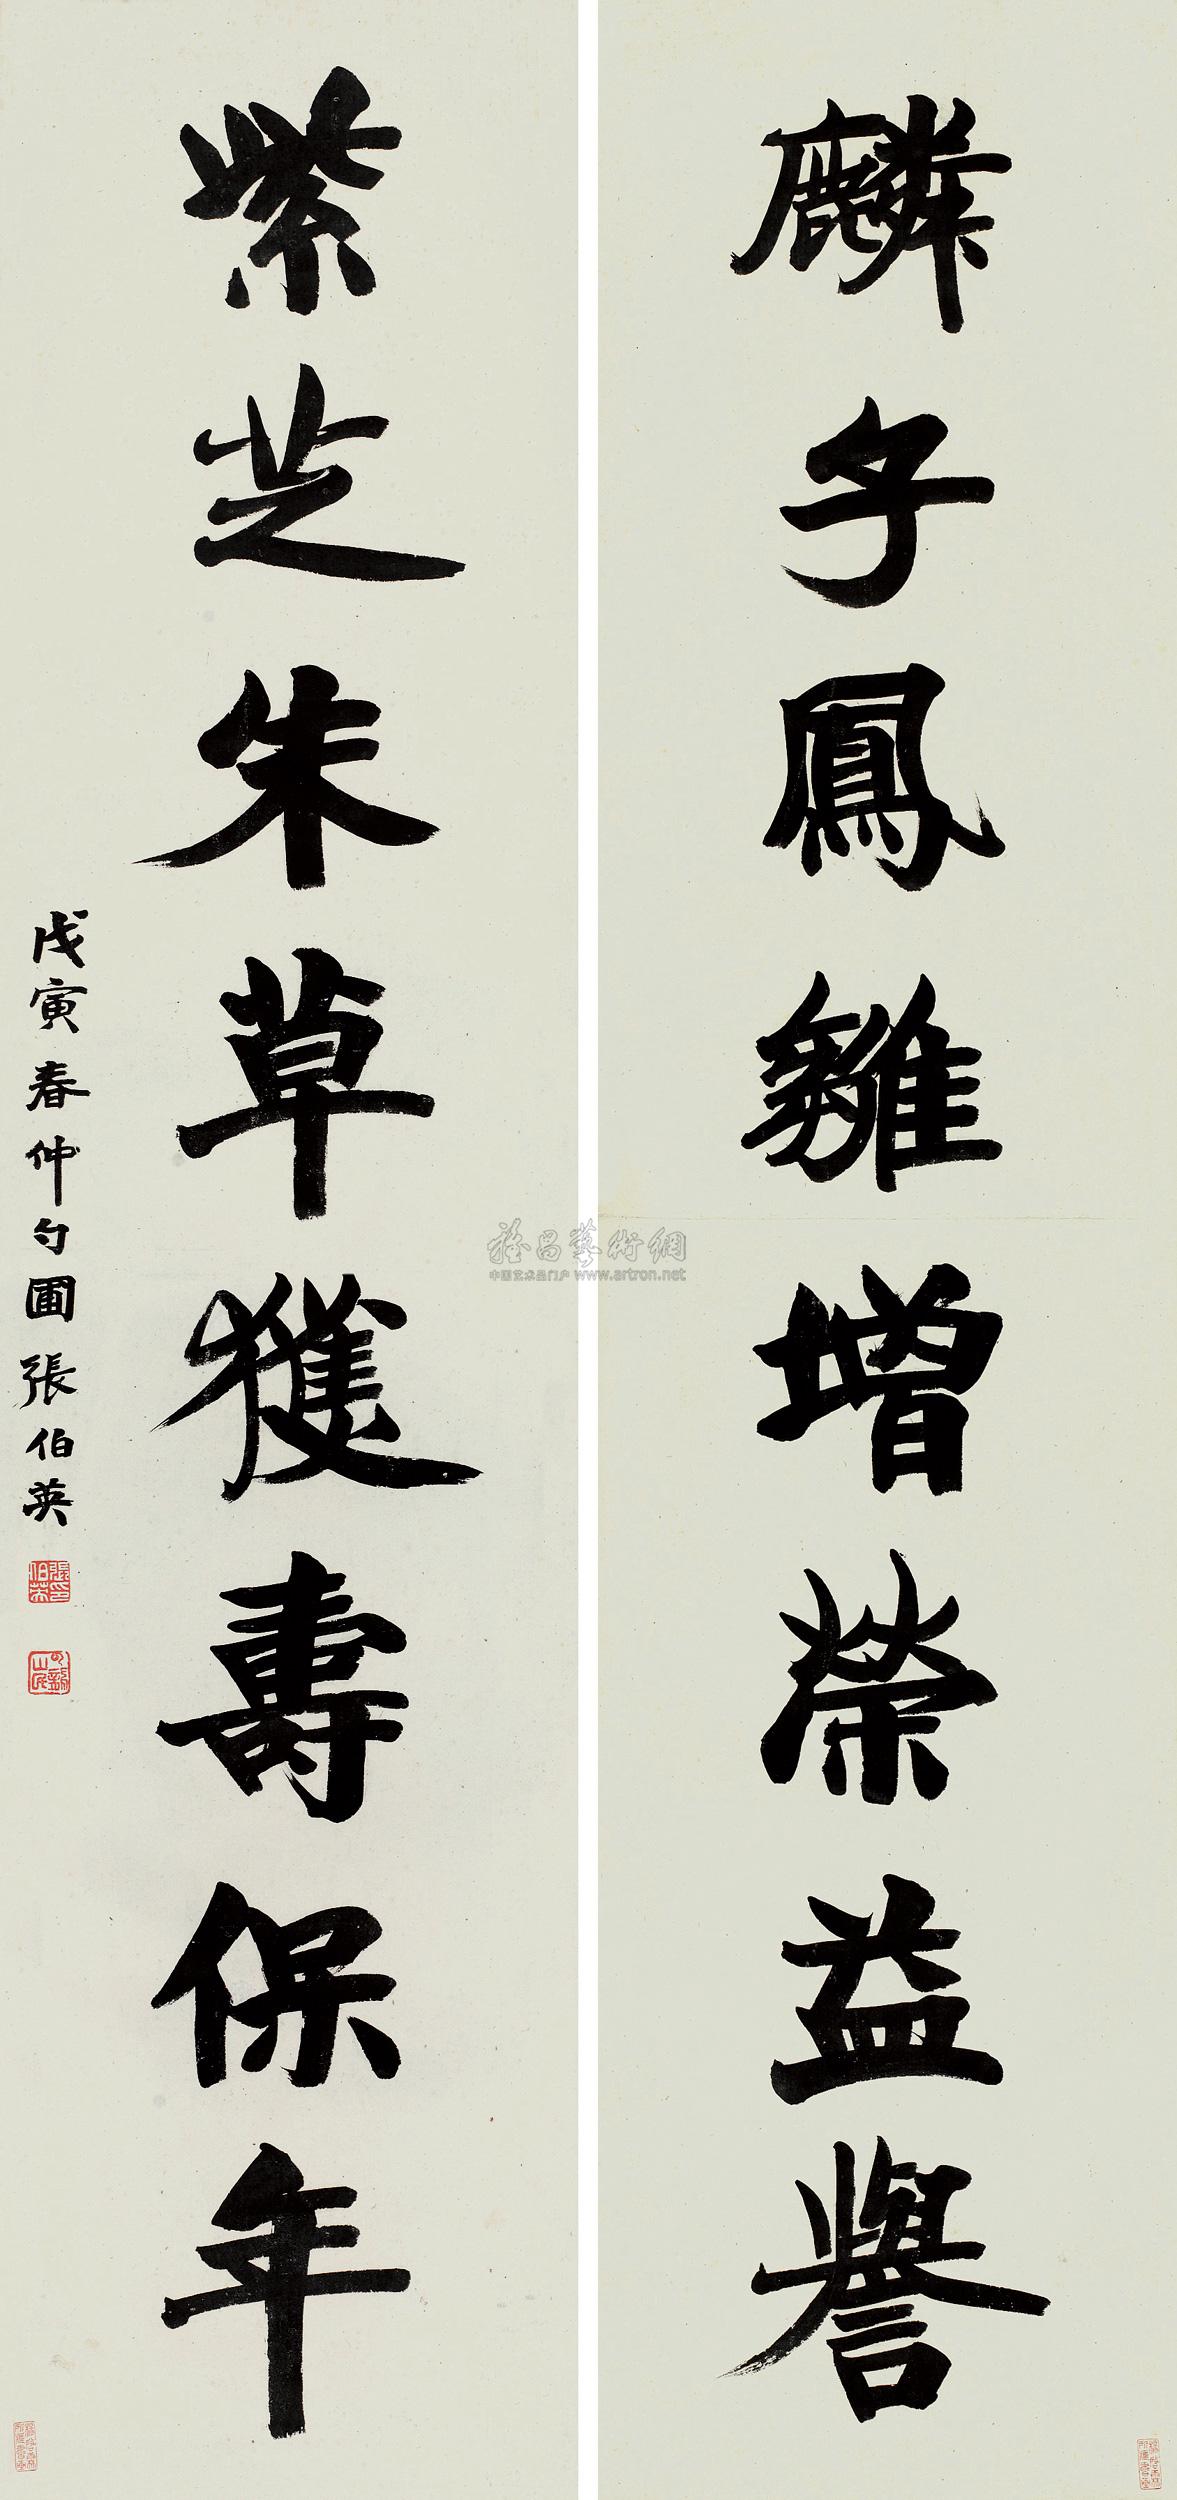 麟子鳳雛增榮益譽
紫芝朱草獲壽保年
戊寅春仲勺圃張伯英
雅昌藝術網
中国艺术品门户 www.artron.net